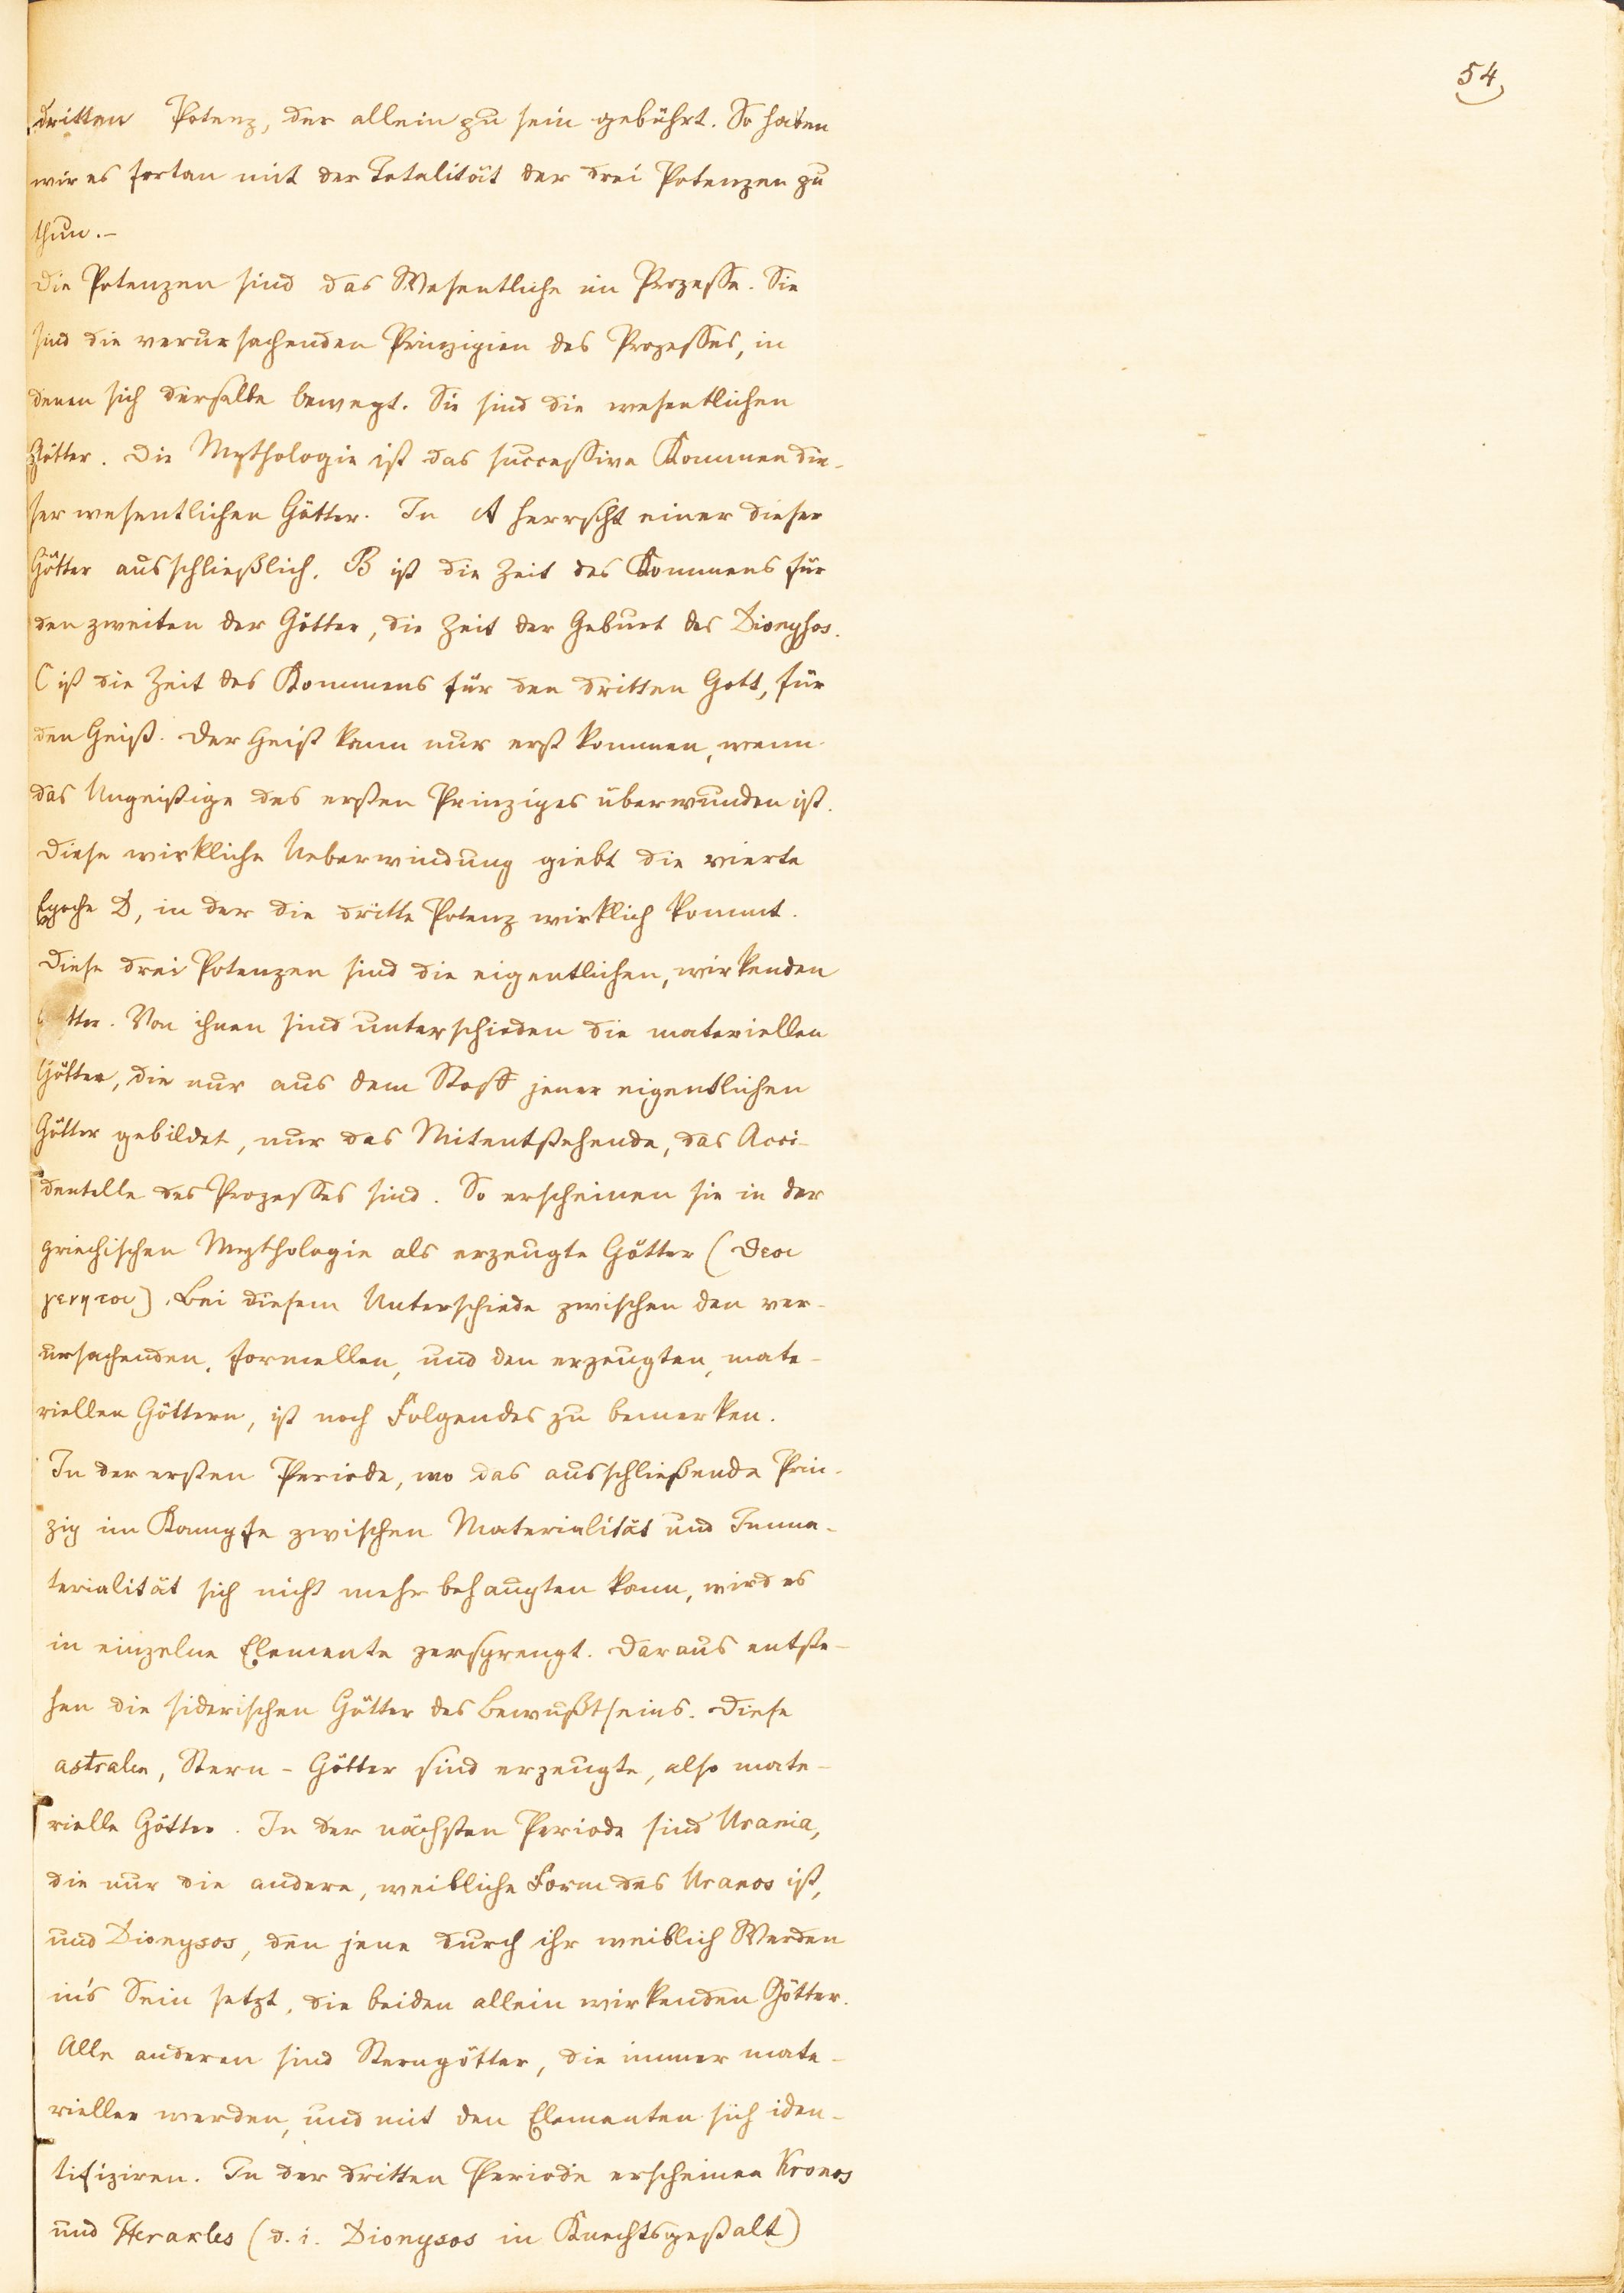 54
dritten Potenz, der allein zu sein gebührt. So haben
wir es fortan mit der Totalität der drei Potenzen zu
thun.–
Die Potenzen sind das Wesentliche im Prozesse. Sie
sind die verursachenden Prinzipien des Prozesses, in
denen sich derselbe bewegt. Sie sind die wesentlichen
Götter. Die Mythologie ist das successive Kommen die-
ser wesentlichen Götter. In A herrscht einer dieser
Götter ausschließlich. B ist die Zeit des Kommens für
den zweiten der Götter, die Zeit der Geburt des Dionysos.
C ist die Zeit des Kommens für den dritten Gott, für
den Geist. Der Geist kann nur erst kommen, wenn
das Ungeistige des ersten Prinzipes überwunden ist.
Diese wirkliche Ueberwindung giebt die vierte
Epoche D, in der die dritte Potenz wirklich kommt.
Diese drei Potenzen sind die eigentlichen, wirkenden
Götter. Von ihnen sind unterschieden die materiellen
Götter, die nur aus dem Stoff jener eigentlichen
Götter gebildet, nur das Mitentstehende, das Acci-
dentelle des Prozesses sind. So erscheinen sie in der
griechischen Mythologie als erzeugte Götter (θεοι
γενητοι). Bei diesem Unterschiede zwischen den ver-
ursachenden, formellen, und den erzeugten, mate-
riellen Göttern, ist noch Folgendes zu bemerken.
In der ersten Periode, wo das ausschließende Prin-
zip im Kampfe zwischen Materialität und Imma-
terialität sich nicht mehr behaupten kann, wird es
in einzelne Elemente zersprengt. Daraus entste-
hen die siderischen Götter des Bewußtseins. Diese
astralen, Stern-Götter sind erzeugte, also mate-
rielle Götter. In der nächsten Periode sind Urania,
die nur die andere, weibliche Form des Uranos ist,
und Dionysos, den jene durch ihr weiblich Werden
in's Sein setzt, die beiden allein wirkenden Götter.
Alle anderen sind Sterngötter, die immer mate-
rieller werden, und mit den Elementen sich iden-
tifiziren. In der dritten Periode erscheinen Kronos
und Herakles (d. i. Dionysos in Knechtsgestalt)